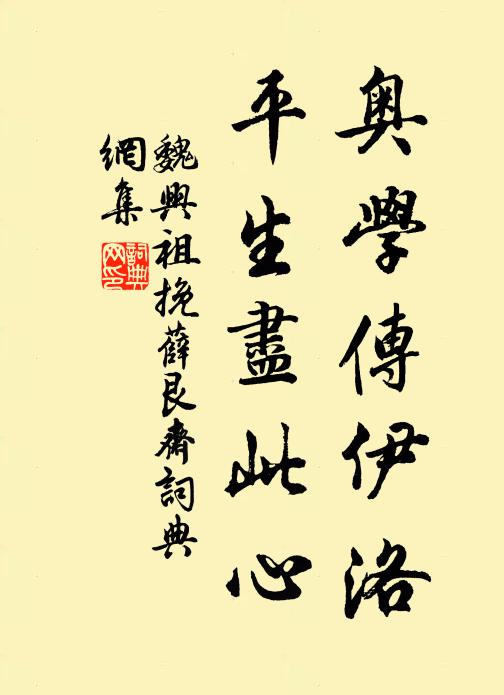 奥學傳伊洛
平生盡此心
魏興祖挽薛艮齋詞典
網集
詞典
网印